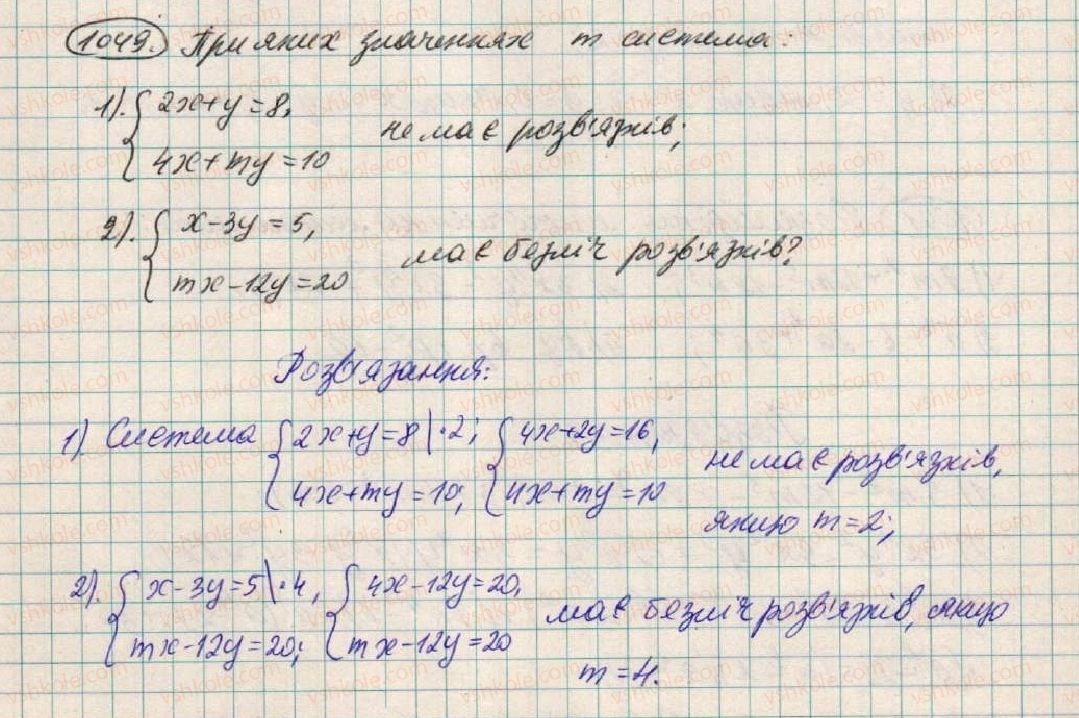 1049. При яких значеннях m система:
1). { 2x+y=8,
4x+my=10
не має розв'язків;
2). { x-3y=5,
mx-12y=20
має безліч розв'язків?
Розв'язання:
1) Система { 2x+y=8 |·2; { 4x+2y=16,
4x+my=10; 4x+my=10
не має розв'язків,
якщо m=2;
2). { x-3y=5 |·4, { 4x-12y=20,
mx-12y=20; mx-12y=20
має безліч розв'язків, якщо
m=4.
vshkole.com